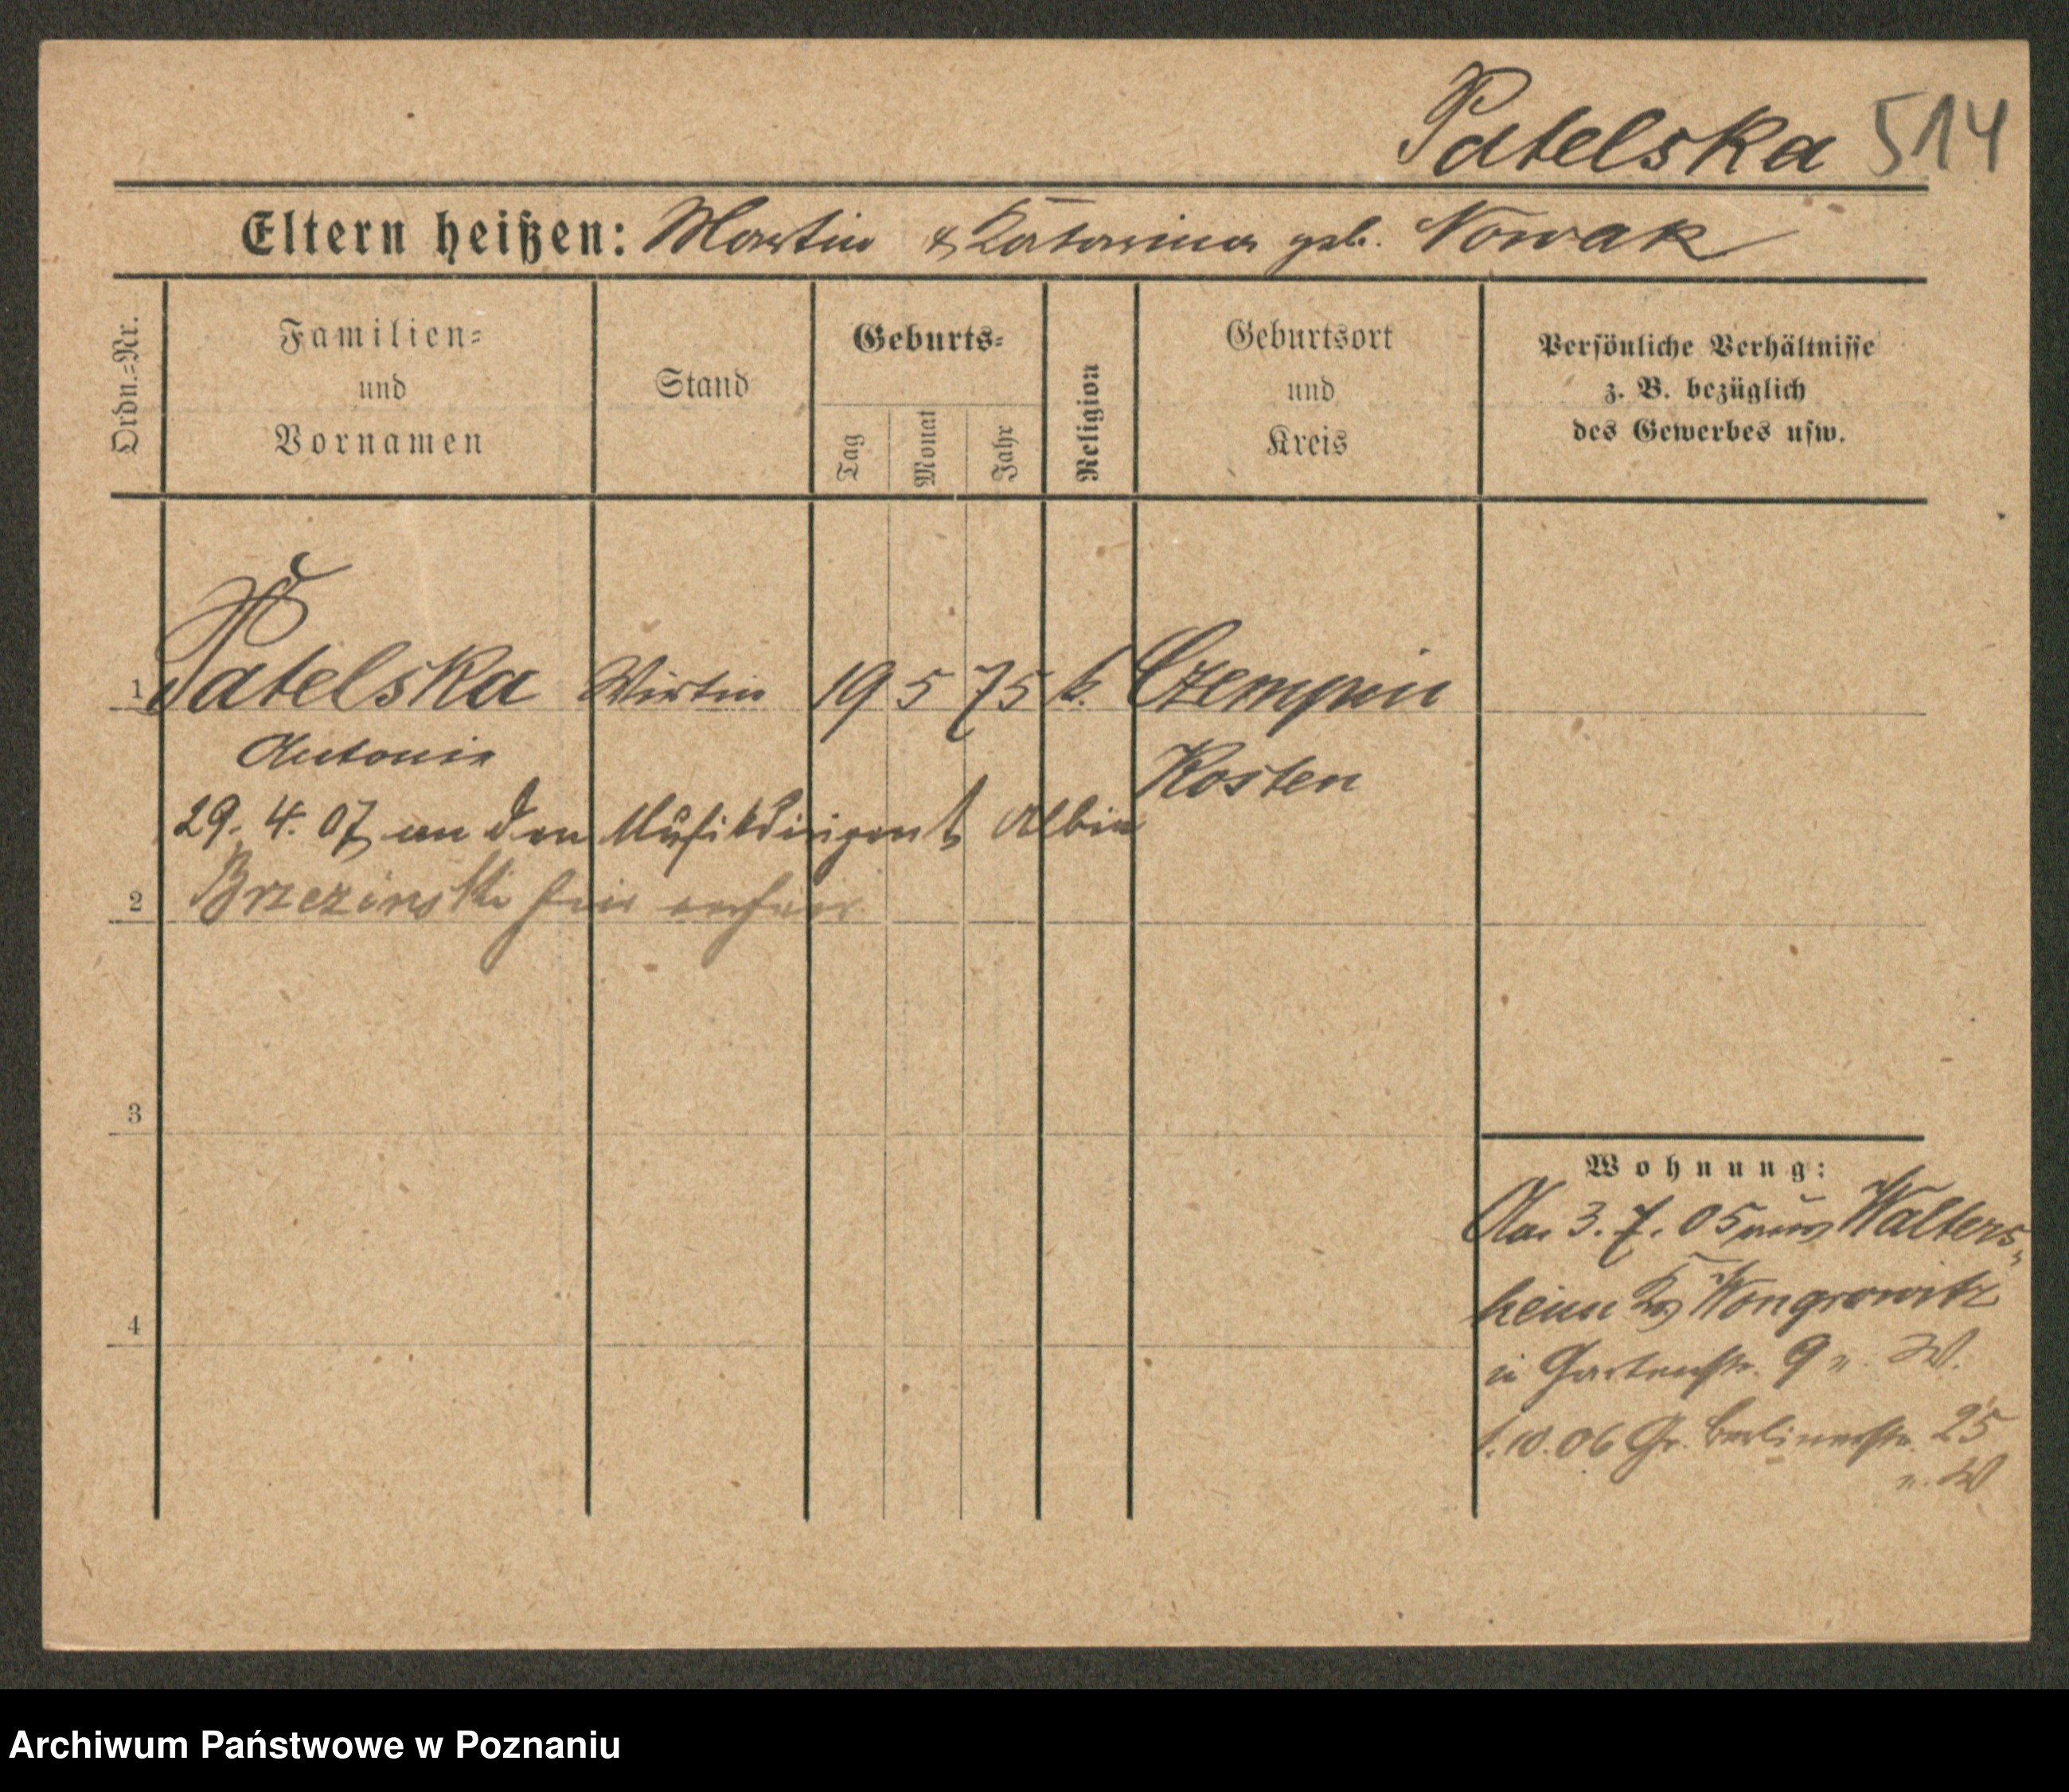 Patelska 514
Eltern heißen: Martin & Katarina geb. Nowak
Ordn.-Nr.
Familien-
und
Vornamen
Stand
Geburts-
Tag
Monat
Jahr
Religion
Geburtsort
und
Kreis
Persönliche Verhältnisse
z. B. bezüglich
des Gewerbes usw.
1 Patelska Wirtin 19 5 75 k. Czempin
Antonie Kosten
29. 4. 07 an den Musikdirigent Albin
2 Brzezinski hier verh
3
4
Wohnung:
Aa. 3. 7. 05 aus Walters-
heim Krs Wongrowitz
in Gartenstr. 9 n. W.
1. 10. 06 Gr. Berlinerstr. 25
n. W
Archiwum Państwowe w Poznaniu